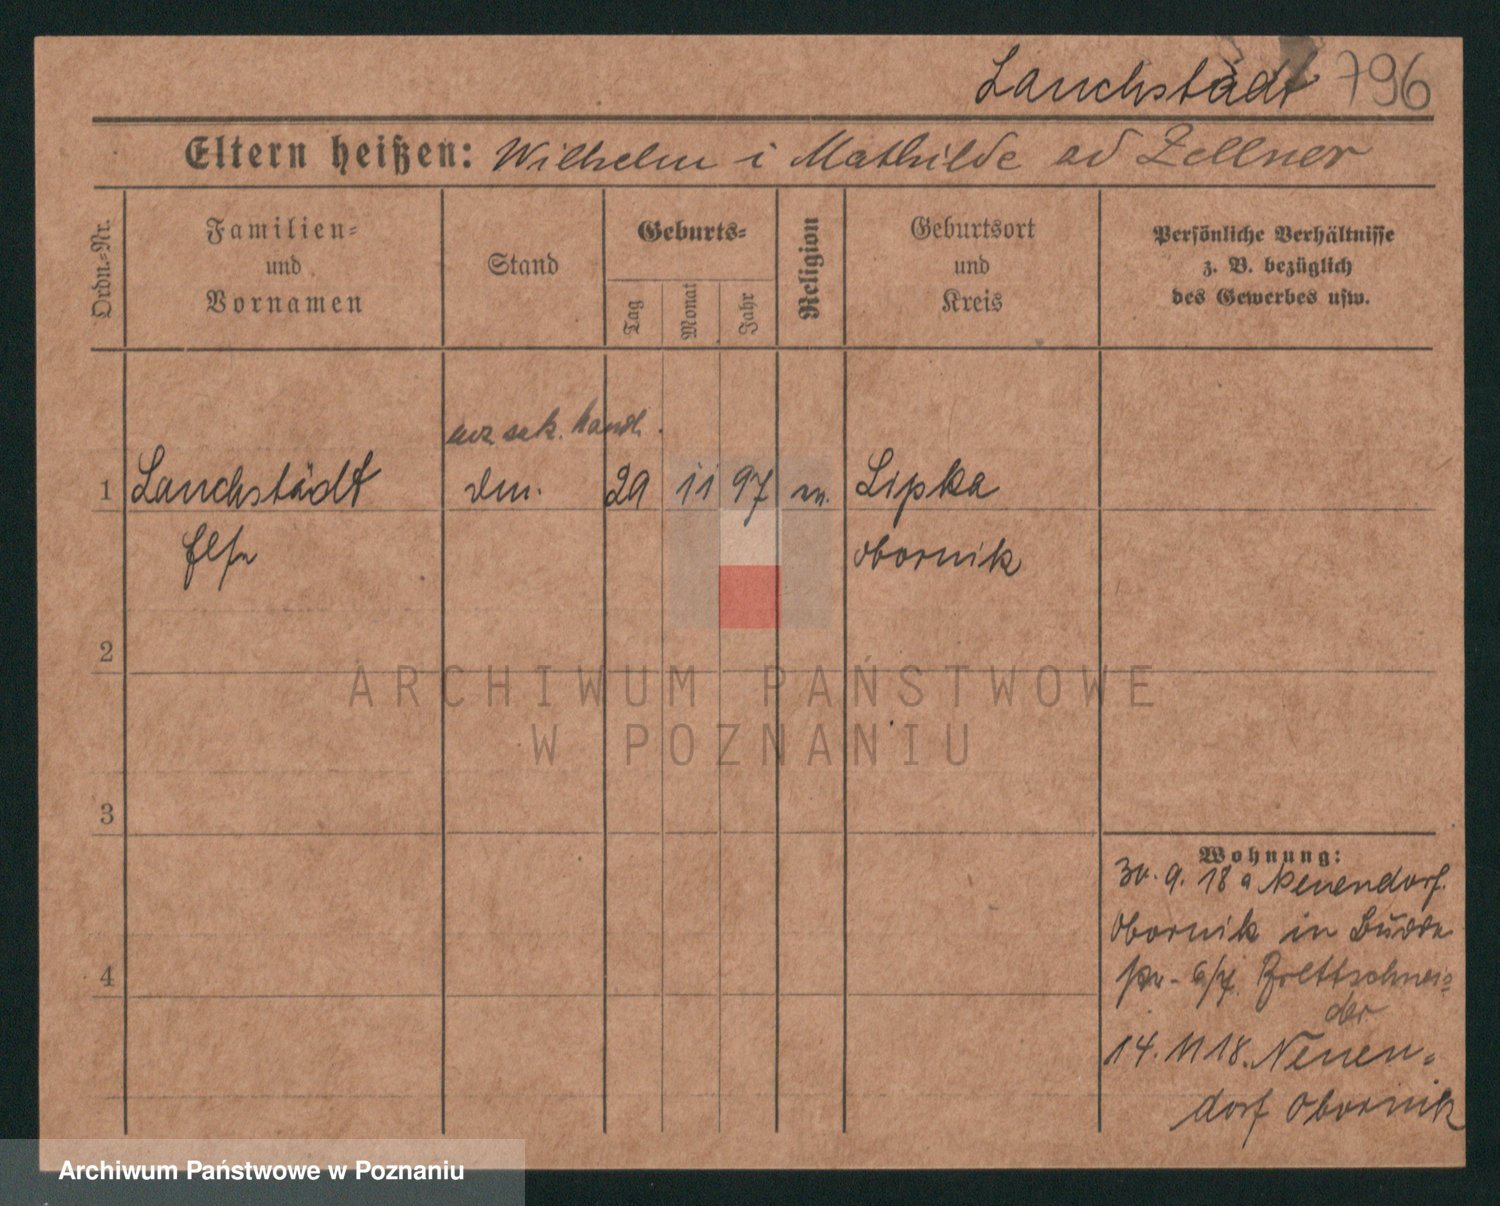 Lauchstädt 796
Eltern heißen: Wilhelm i Mathilde ad Zellner
Ordn.-Nr.
Familien-
und
Vornamen
Stand
Geburts-
Tag
Monat
Jahr
Religion
Geburtsort
und
Kreis
Persönliche Verhältnisse
z. B. bezüglich
des Gewerbes usw.
handl.
1 Lauchstädt 29 11 97 Lipka
Obornik
2
3
4
Wohnung:
30. 9. 18 a Neuendorf.
Obornik in
6/7. Brettschnei-
der
14. 11 18. Neuen-
dorf Obornik
ARCHIWUM PAŃSTWOWE
W POZNANIU
Archiwum Państwowe w Poznaniu